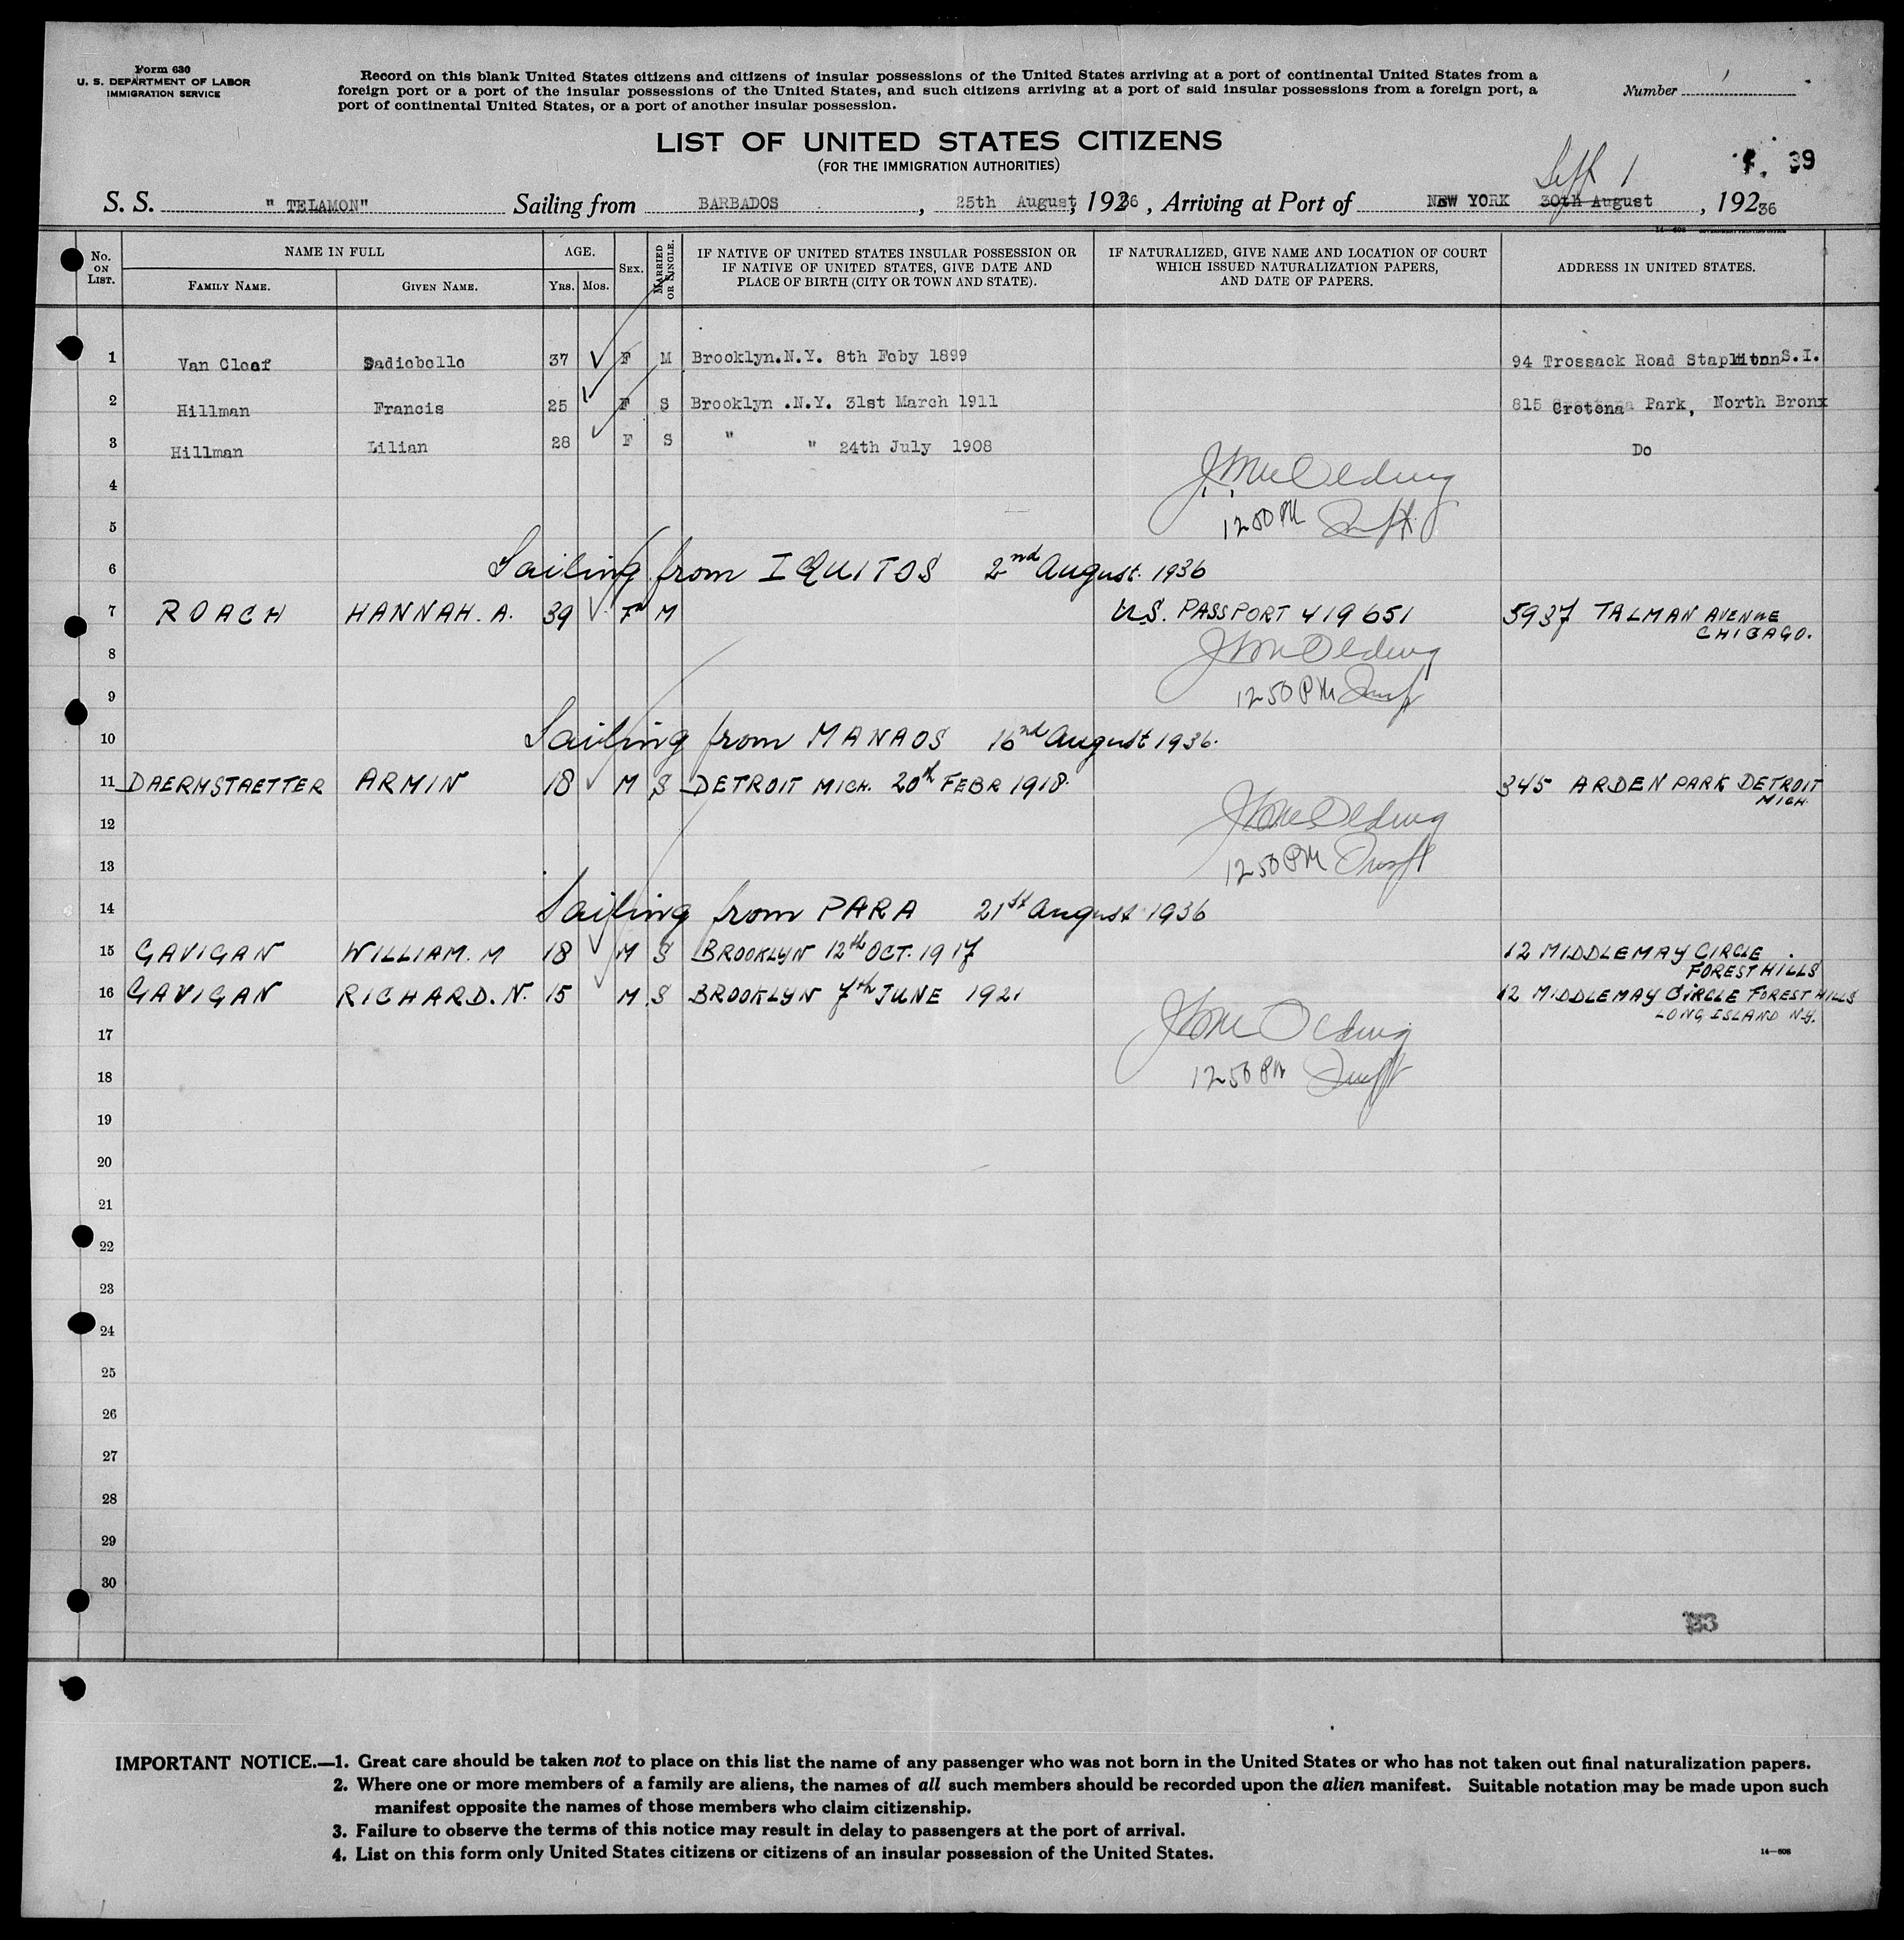 Form 630
U. S. DEPARTMENT OF LABOR
IMMIGRATION SERVICE
Record on this blank United States citizens and citizens of insular possessions of the United States arriving at a port of continental United States from a
foreign port or a port of the insular possessions of the United States, and such citizens arriving at a port of said insular possessions from a foreign port, a
port of continental United States, or a port of another insular possession.
Number
LIST OF UNITED STATES CITIZENS
(FOR THE IMMIGRATION AUTHORITIES)
Sept 1
39
S. S. " TELAMON" Sailing from BARBADOS , 25th August, 19236 , Arriving at Port of NEW YORK 30th August , 19236
No. ON LIST.
NAME IN FULL
FAMILY NAME.
GIVEN NAME.
AGE.
YRS. MOS.
SEX.
MARRIED OR SINGLE.
IF NATIVE OF UNITED STATES INSULAR POSSESSION OR
IF NATIVE OF UNITED STATES, GIVE DATE AND
PLACE OF BIRTH (CITY OR TOWN AND STATE).
IF NATURALIZED, GIVE NAME AND LOCATION OF COURT
WHICH ISSUED NATURALIZATION PAPERS,
AND DATE OF PAPERS.
ADDRESS IN UNITED STATES.
1 Van Cleef Sadiebelle 37 F M Brooklyn.N.Y. 8th Feby 1899 94 Trossack Road Stapleton S.I.
2 Hillman Francis 25 F S Brooklyn .N.Y. 31st March 1911 815 Crotona Park, North Bronx
3 Hillman Lilian 28 F S " " 24th July 1908 Do
4
5 12 50 PM
6 Sailing from IQUITOS 2nd August. 1936
7 ROACH HANNAH. A. 39 F M U.S. PASSPORT 419651 5937 TALMAN AVENUE
CHICAGO.
8
9 12 50 PM
10 Sailing from MANAOS 16nd August 1936.
11 DAERMSTAETTER ARMIN 18 M S DETROIT MICH. 20th FEBR 1918. 345 ARDEN PARK DETROIT
MICH.
12
13 12 50 PM
14 Sailing from PARA 21st August 1936
15 GAVIGAN WILLIAM. M 18 M S BROOKLYN 12th OCT. 1917 12 MIDDLEMAY CIRCLE
FOREST HILLS
16 GAVIGAN RICHARD. N. 15 M S BROOKLYN 7th JUNE 1921 12 MIDDLEMAY CIRCLE FOREST HILLS
LONG ISLAND N.Y.
17
18 12 50 PM
19
20
21
22
23
24
25
26
27
28
29
30
IMPORTANT NOTICE.—1. Great care should be taken not to place on this list the name of any passenger who was not born in the United States or who has not taken out final naturalization papers.
2. Where one or more members of a family are aliens, the names of all such members should be recorded upon the alien manifest. Suitable notation may be made upon such
manifest opposite the names of those members who claim citizenship.
3. Failure to observe the terms of this notice may result in delay to passengers at the port of arrival.
4. List on this form only United States citizens or citizens of an insular possession of the United States.
14—608